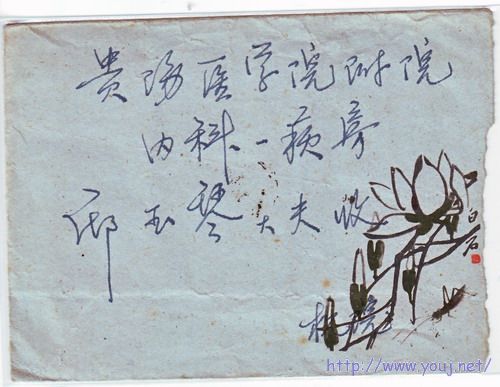 贵阳医学院附院
内科一病房
玉琴大夫收
白石
http://www.youj.net/